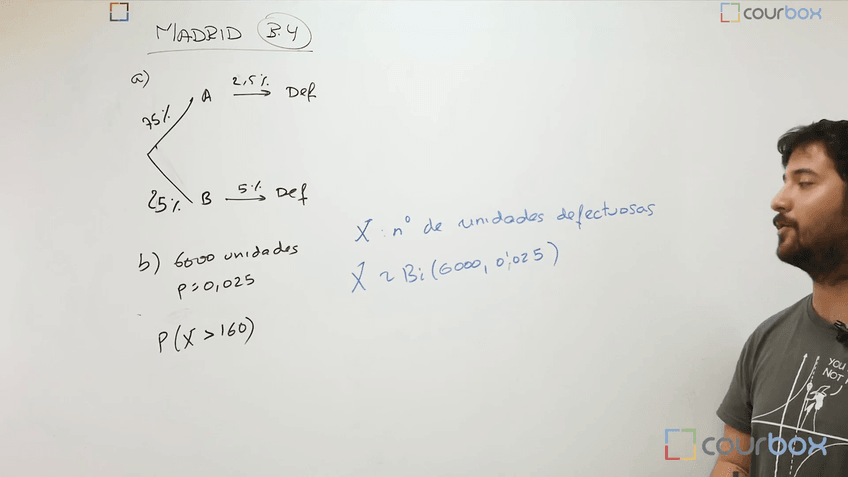 MADRID B.4
a)
75% A 2,5% Def
25% B 5% Def
b) 6000 unidades
p=0,025
P(X>160)
X: nº de unidades defectuosas
X ~ Bi(6000, 0,025)
YOU
NOT
courbox
courbox